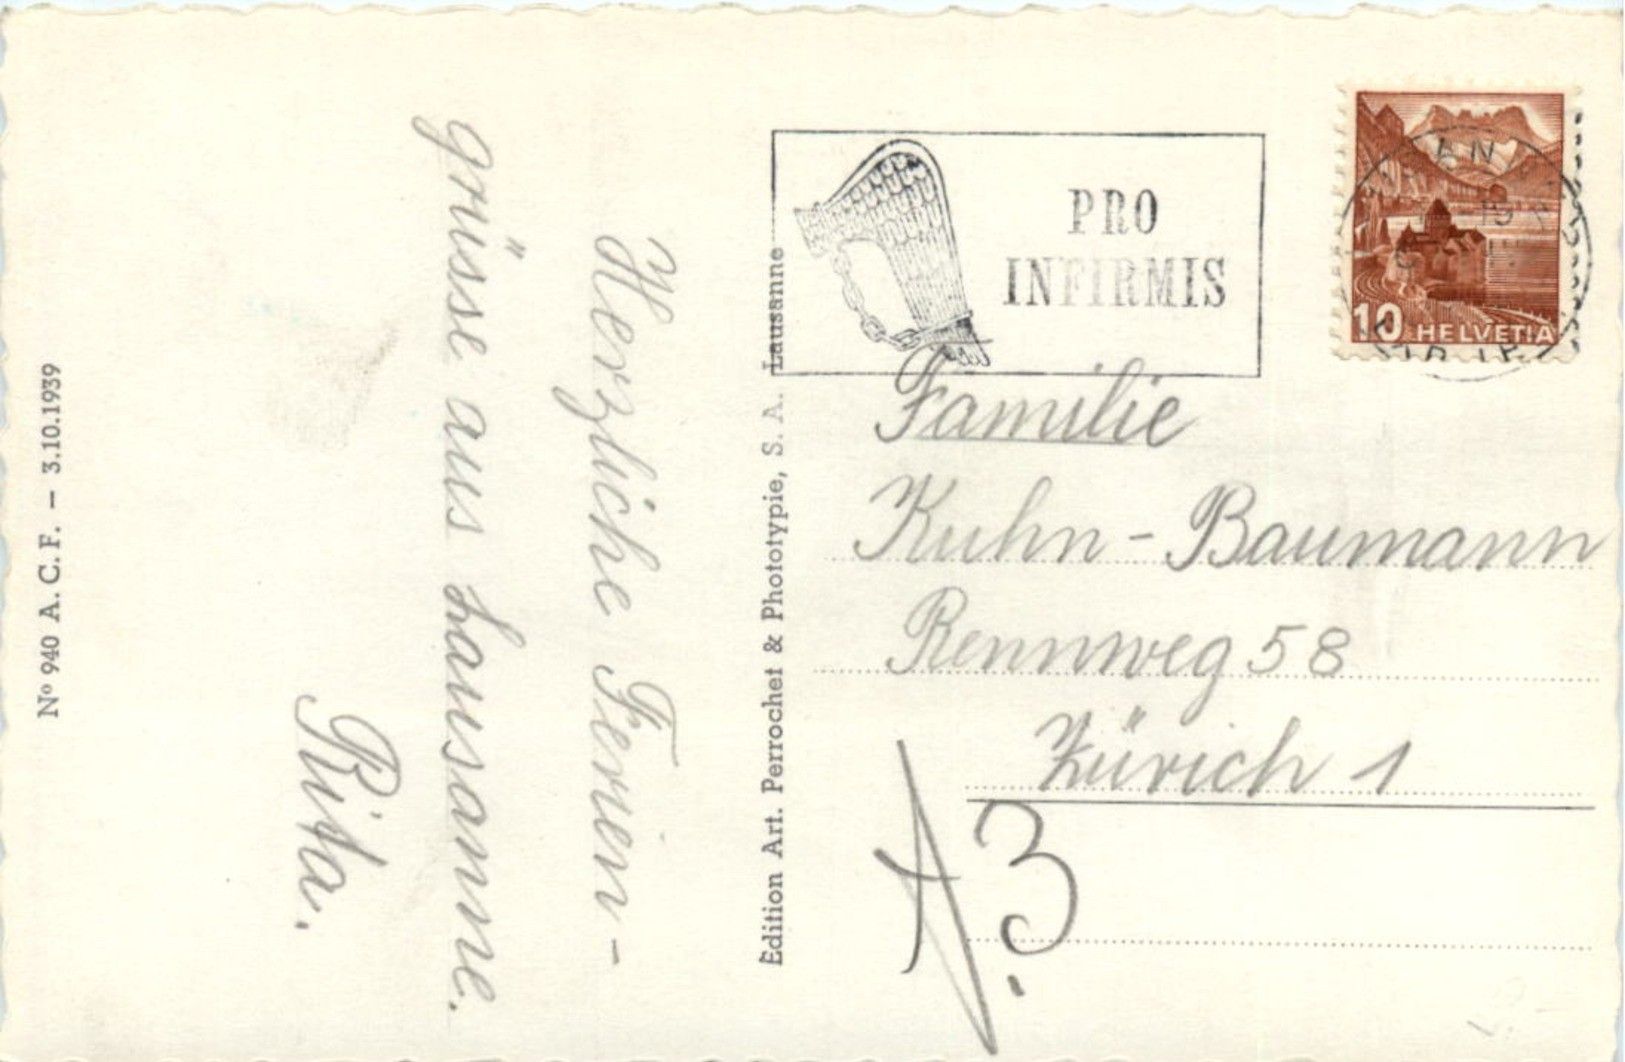 Nº 940 A. C. F. — 3.10.1939
Herzliche Ferien-
grüsse aus Lausanne.
Rita.
Edition Art. Perrochet & Phototypie, S. A. Lausanne
PRO
INFIRMIS
10 HELVETIA
Familie
Kuhn-Baumann
Rennweg 58
Zürich 1